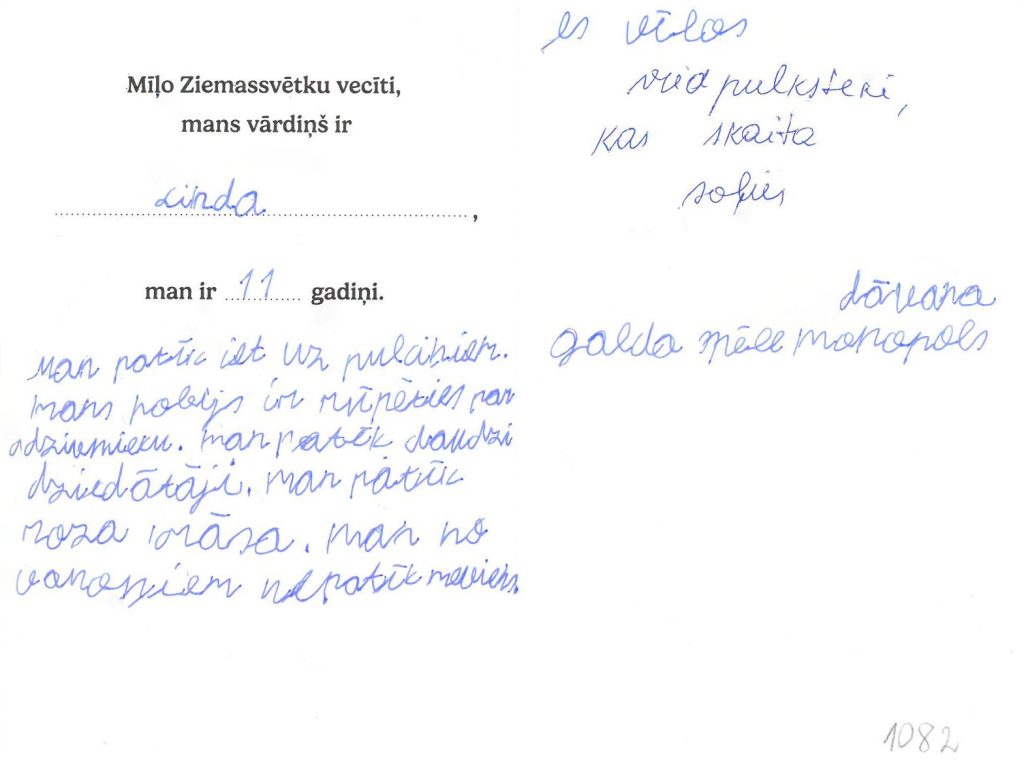 Mīļo Ziemassvētku vecīti,
mans vārdiņš ir
Linda,
man ir 11 gadiņi.
man patīk iet uz pulciņiem.
mans hobijs ir rūpēties par
dziedātāji. man patīk
roza krāsa. man no
nepatīk neviens.
es vēlos
viedpulksteni,
kas skaita
soļus
dāvana
galda spēle monopols
1082